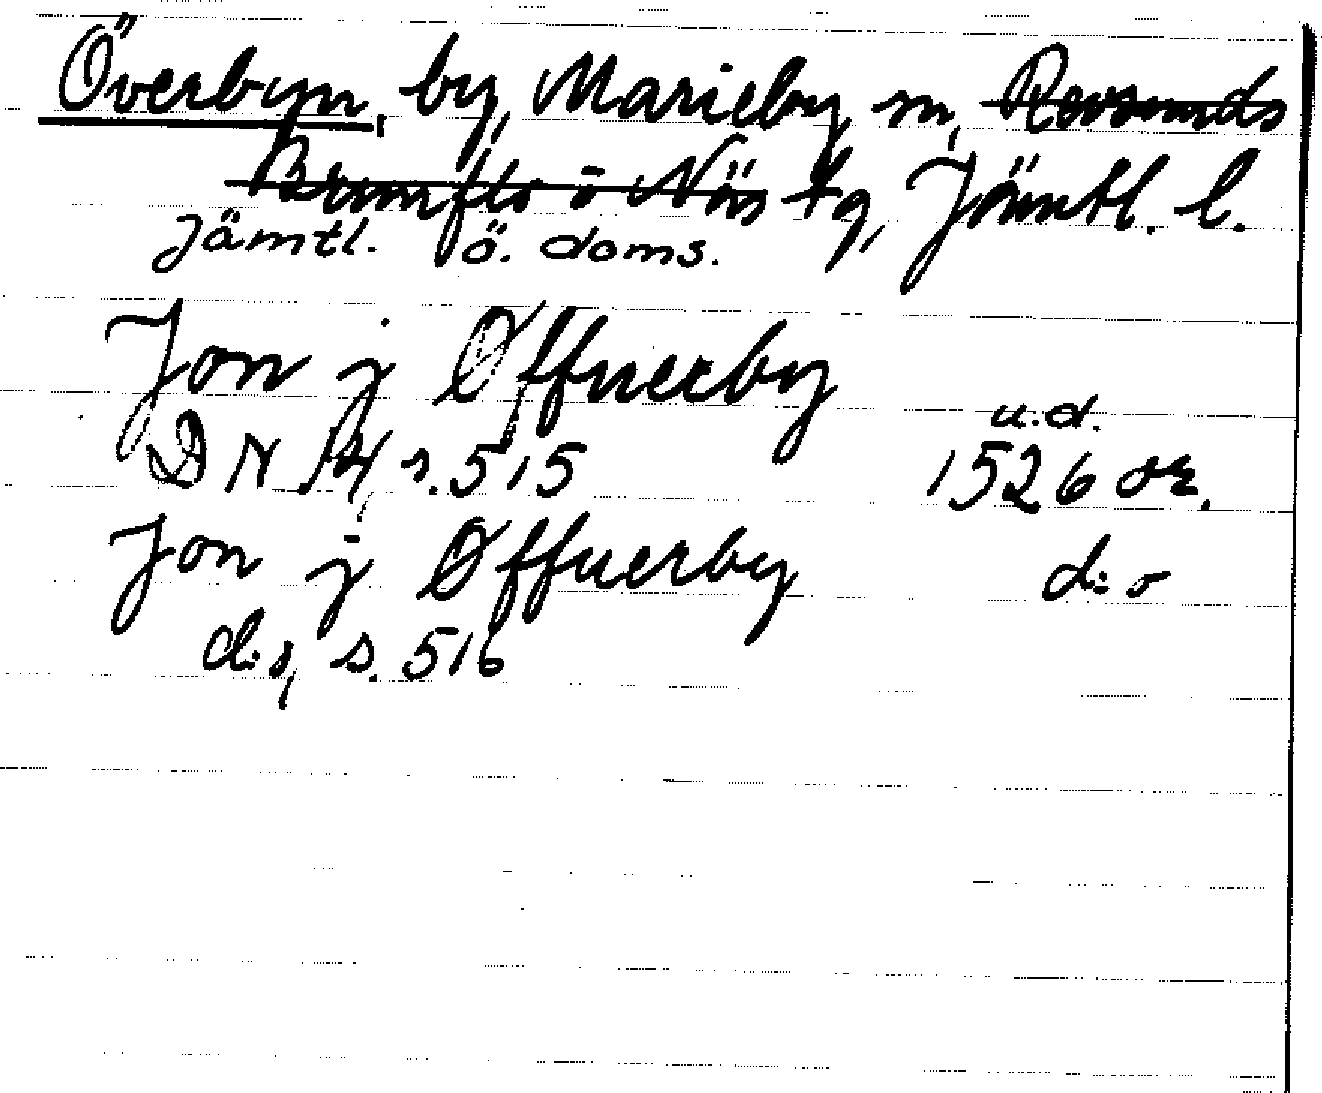 Överbyn, by, Marieby sn, Revsunds
Brunflo o Näs tg, Jämtl. l.
Jämtl. ö. doms.
Jon j Øffuerby
u.d.
DN 14, s. 515 1526 or.
Jon j Øffuerby d:o
d:s, s. 516